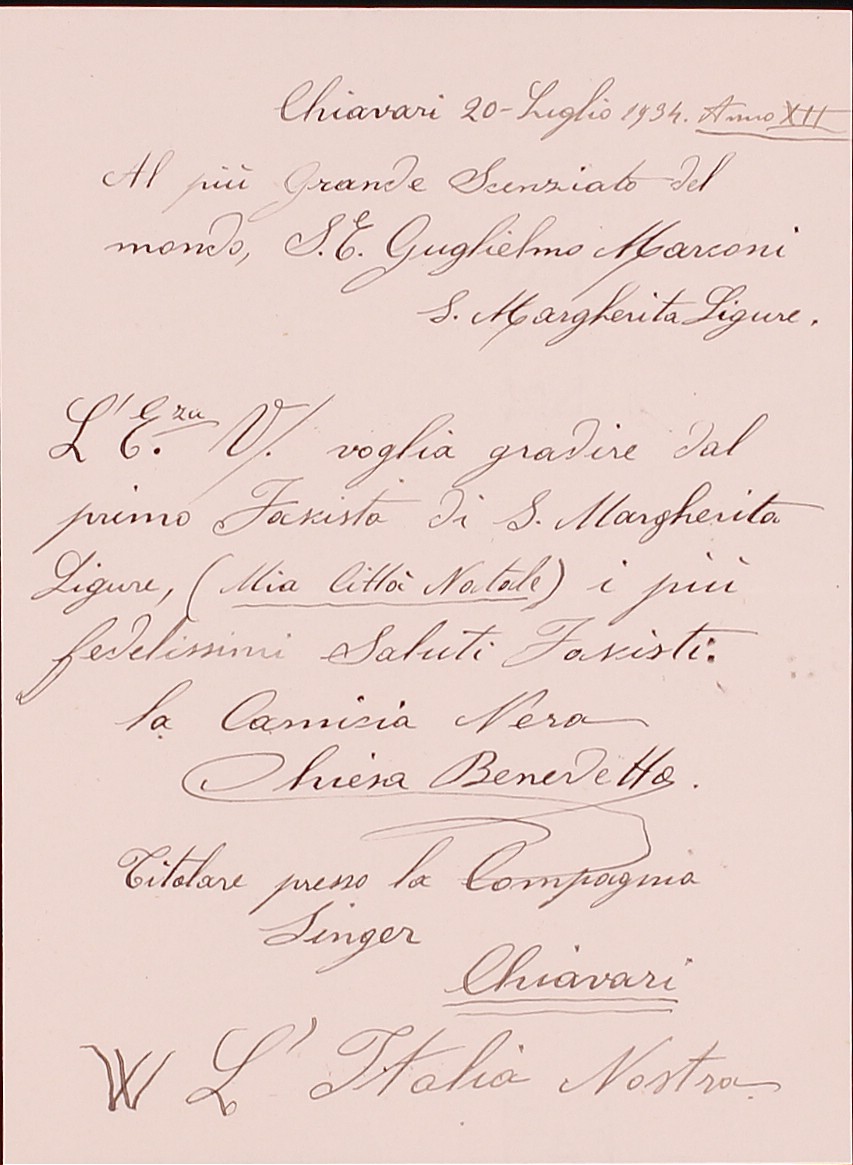 Chiavari 20-Luglio 1934. Anno XII
Al più Grande Scenziato del
mondo, S.E. Guglielmo Marconi
S. Margherita Ligure.
L'E.za V. voglia gradire dal
primo Faxista di S. Margherita
Ligure, (Mia Città Natale) i più
fedelissimi Saluti Faxisti:
la Camicia Nera
Chiesa Benedetto.
Titolare presso la Compagnia
Singer
Chiavari
W L'Italia Nostra